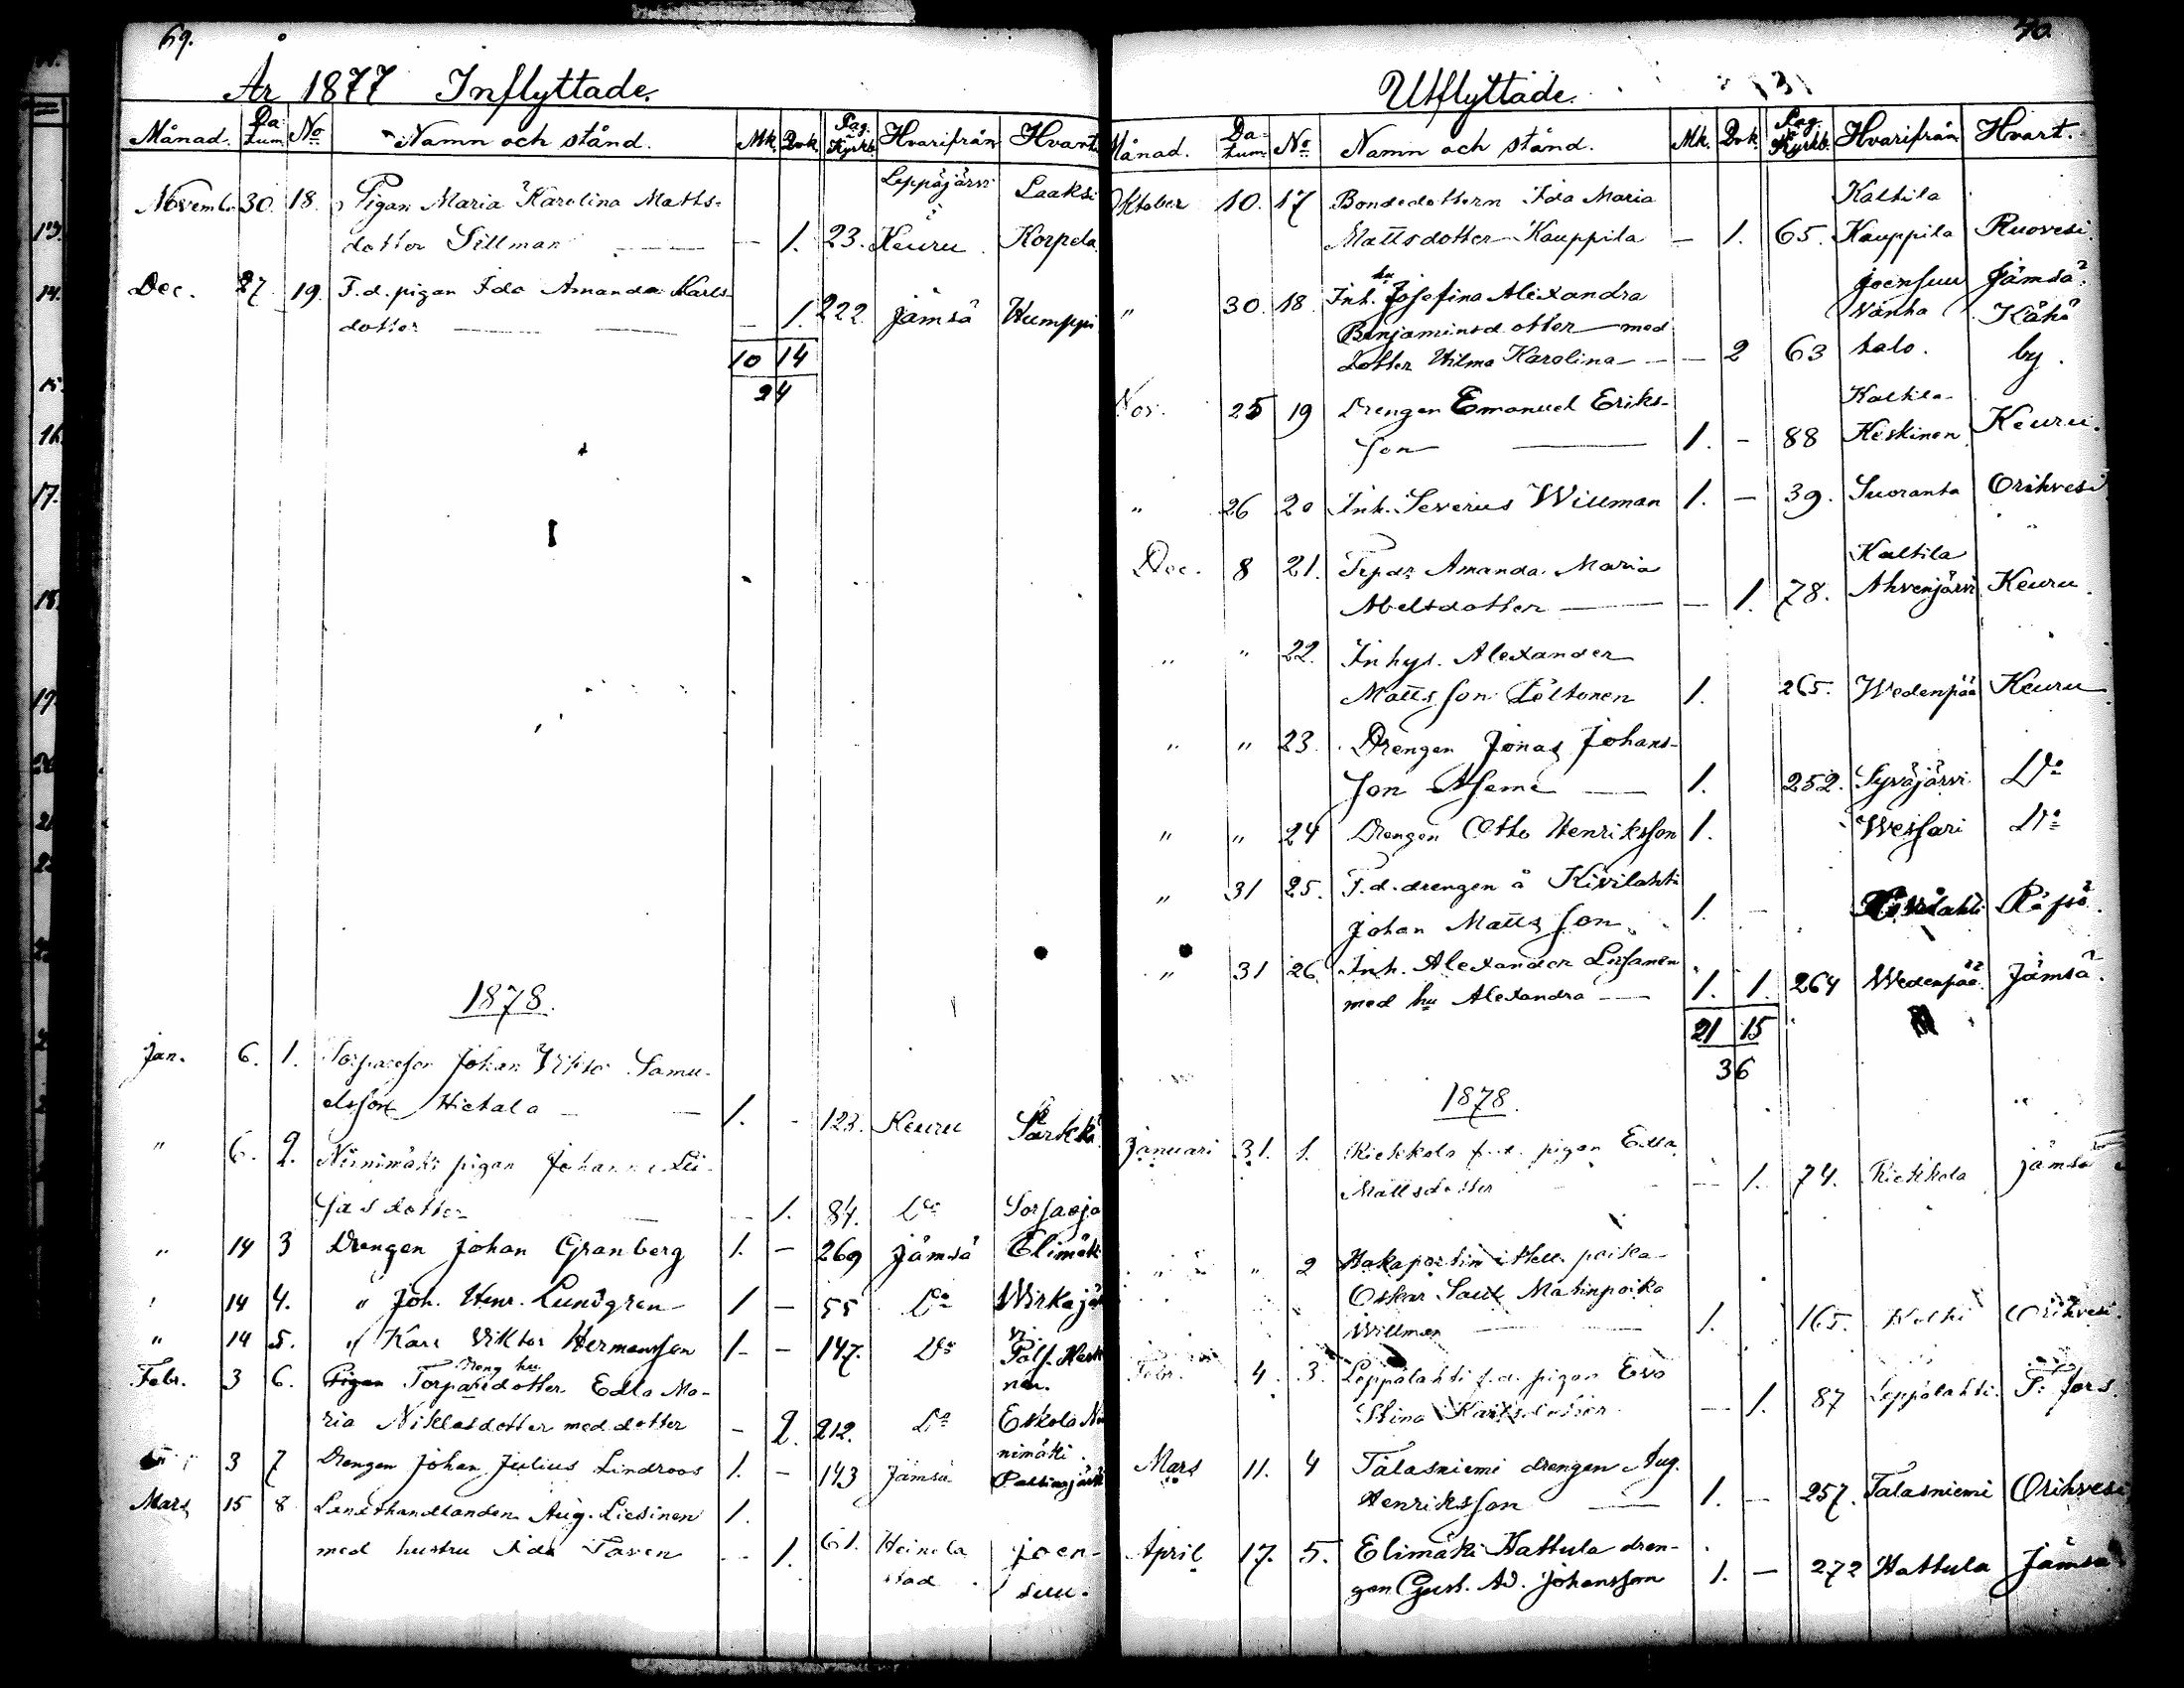 69.
År 1877 Inflyttade.
Månad. Datum No Namn och stånd. Mk. Qvk. Pag. i Kyrkb. Hvarifrån Hvart
Leppäjärvi Laaksi
Novemb. 30. 18. Pigan Maria Karolina Matts-
dotter Sillman — — 1. 23. Keuru Korpela
Dec. 27 19. F.d. pigan Ida Amanda Karls-
dotter — — — 1. 222. Jämsä Humppi
10 14
24
1878.
Jan. 6. 1. Johan Viktor Samu-
elsson Hietala — — 1. - 123. Keuru Särkkä
" 6. 2. Niinimäki pigan Johanna Lii-
sasdotter — — 1. 84. Do Sorsaoja
" 14 3 Drengen Johan Granberg 1. — 269 Jämsä Elimäki
" 14 4. " Joh. Henr. Lundgren 1 — 55 Do Wirkajär
vi.
" 14 5. " Karl Viktor Hermansson 1 - - 147. Do
nen.
Febr. 3 6. Pigan Torparedotter Edla Ma-
ria Niklasdotter med dotter - 2. 212. Do Eskola Nii
nimäki.
3 7 Drengen Johan Julius Lindroos 1. - 143 Jämsä
Mars 15 8 Landthandlanden Aug. Liesinen 1.
med hustru Ida — 1. 61. Heinola Joen-
stad suu.
70.
Utflyttade.
Månad. Datum No Namn och stånd. Mk. Qvk. Pag. i Kyrkb. Hvarifrån Hvart.
Kaltila
Oktober 10. 17 Bondedottern Ida Maria
Mattsdotter Kauppila — 1. 65. Kauppila Ruovesi.
Joensuu Jämsä
" 30. 18. Inh. hu Josefina Alexandra Wanha
Benjaminsdotter med
dotter Hilma Karolina — — 2 63 talo. by.
Kaltila
Nov. 25 19 Drengen Emanuel Eriks-
son — — 1. - 88 Keskinen Keuru.
" 26 20 Inh. Severius Willman 1. — 39. Suoranta Orihvesi
Kaltila
Dec. 8 21. Amanda Maria
Abelsdotter — — 1. 78. Ahvenjärvi Keuru.
" " 22. Inhys. Alexander
Mattsson Peltonen 1. 265. Wedenpää Keuru
" " 23. Drengen Jonas Johans-
son — 1. 252. Syväjärvi Do
" " 24 Drengen Otto Henriksson 1. Wessari Do
" 31 25. F.d. drengen å Kivilahti
Johan Mattsson 1. - Kivilahti
" 31 26. Inh. Alexander
med hu Alexandra — 1. 1. 264 Wedenpää Jämsä.
21 15
36
1878.
Januari 31. 1. Riekkola f.d. pigan Edla
Mattsdotter — — 1. 74. Riekkola Jämsä
" " 2 Hakaportin itsell. poika
Oskar Matinpoika
Willman — 1. 165. Orihvesi.
Febr. 4. 3. Leppälahti f.d. pigan Eva
Stina Karlsdotter — 1. 87 Leppälahti T: fors.
Mars 11. 4 Talasniemi drengen Aug.
Henriksson — 1. — 257. Talasniemi Orihvesi
April 17. 5. Elimäki Hattula dren-
gen Gust. Ad. Johansson 1. — 272 Hattula Jämsä